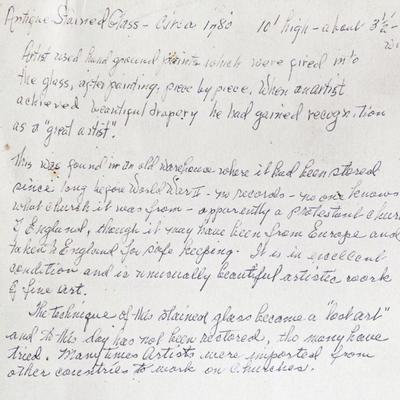 Antique Stained Glass - Circa 1780 10' high - about 3½'-
Artist used hand ground paints which were fired into
the glass, after painting, piece by piece. When an artist
achieved beautiful drapery he had gained recognition
as a "great artist".
This was found in an old warehouse where it had been stored
since long before World War II - no records - no one knows
what church it was from - apparently a Protestant Church
of England, though it may have been from Europe and
taken to England for safe keeping. It is in excellent
condition and is unusually beautiful artistic work
of fine art.
The technique of this stained glass became a "lost art"
and to this day has not been restored, tho many have
tried. Many times Artists were imported from
other countries to work on churches.